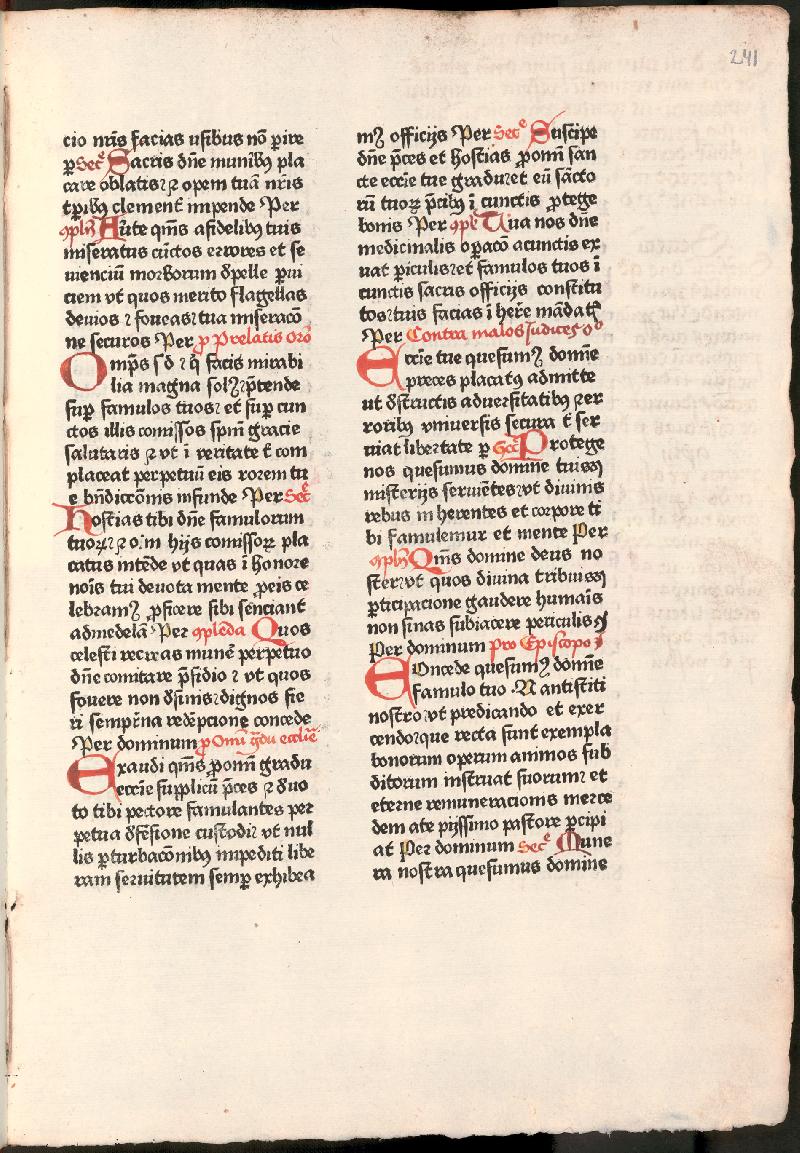 241
cio nr̄is facias usibus nō p̱ire
p̱ Secᵉ Sacris dn̄e munibꝫ pla
care oblatis ⁊ opem tuā nr̄is
tp̱ibꝫ clement̄ impende Per
ꝯpln̄ Auerte qm̄s a fidelibꝫ tuis
miseratus cūctos errores et se
uienciū morborum depelle p̱ni
ciem vt quos merito flagellas
deuios ⁊ foueas tua miseracō
ne securos Per ꝓ Prelatis Orō
Omp̄s s̄ d ⁊ q̄ facis mirabi
lia magna solꝫ ꝑtende
sup̱ famulos tuos ⁊ et sup̱ cun
ctos illis comissos spm̄ gracie
salutaris ⁊ vt i veritate t̄ com
placeat perpetuū eis rorem tu
e bn̄dictōnis infunde Per Secᵉ
Hostias tibi dn̄e famulorum
tuoꝝ ⁊ oīm hijs comissoꝝ pla
catus intēde vt quas ī honore
noīs tui deuota mente ꝓ eis ce
lebramꝫ ꝓficere sibi senciant
ad medelā Per ꝯplēda Quos
celesti recreas munē perpetuo
dn̄e comitare p̄sidio ⁊ vt quos
fouere non desinis dignos fie
ri sempit̄na redēpcione concede
Per dominum ꝓ Omī g̊du ecclīe
Exaudi qm̄s ꝓ om̄i gradu
eccīe supplicū p̄ces ⁊ deuo
to tibi pectore famulantes per
petua defēsione custodi ⁊ vt nul
lis ꝑturbacōnibꝫ impediti libe
ram seruitutem semp̱ exhibea
mꝫ officijs Per Secᵉ Suscipe
dn̄e p̄ces et hostias ꝓ om̄i san
cte eccīe tue gradu ⁊ et eū sācto
rū tuoꝝ p̄cibꝫ ī cunctis ꝓtege
bonis Per ꝯplē Tua nos dn̄e
medicinalis op̱acō a cunctis ex
uat p̱iculis ⁊ et famulos tuos ī
cunctis sacris officijs constitu
tos ⁊ tuis facias ī her̄e mādatꝭ
Per Contra malos Judices oᵒ
Eccīe tue quesumꝫ domīe
preces placatꝰ admitte
ut destructis aduersitatibꝫ ⁊ er
roribꝫ vniuersis secura t̄ ser
uiat libertate p̱ Secᵃ Protege
nos quesumus domine tuis
misterijs seruientes ⁊ vt diuinis
rebus inherentes et corpore ti
bi famulemur et mente Per
ꝯpln̄ Qm̄s domine deus no
ster ⁊ vt quos diuina tribuis
ꝑticipacione gaudere humāis
non sinas subiacere periculis
Per dominum pro Episcopo
Concede quesumꝫ domīe
famulo tuo .N. antistiti
nostro ⁊ vt predicando et exer
cendo ⁊ que recta sunt exempla
bonorum operum animos sub
ditorum instruat suorum ⁊ et
eterne remuneracionis merce
dem a te pijssimo pastore p̱cipi
at Per dominum Secᵉ Mune
ra nostra quesumus domine